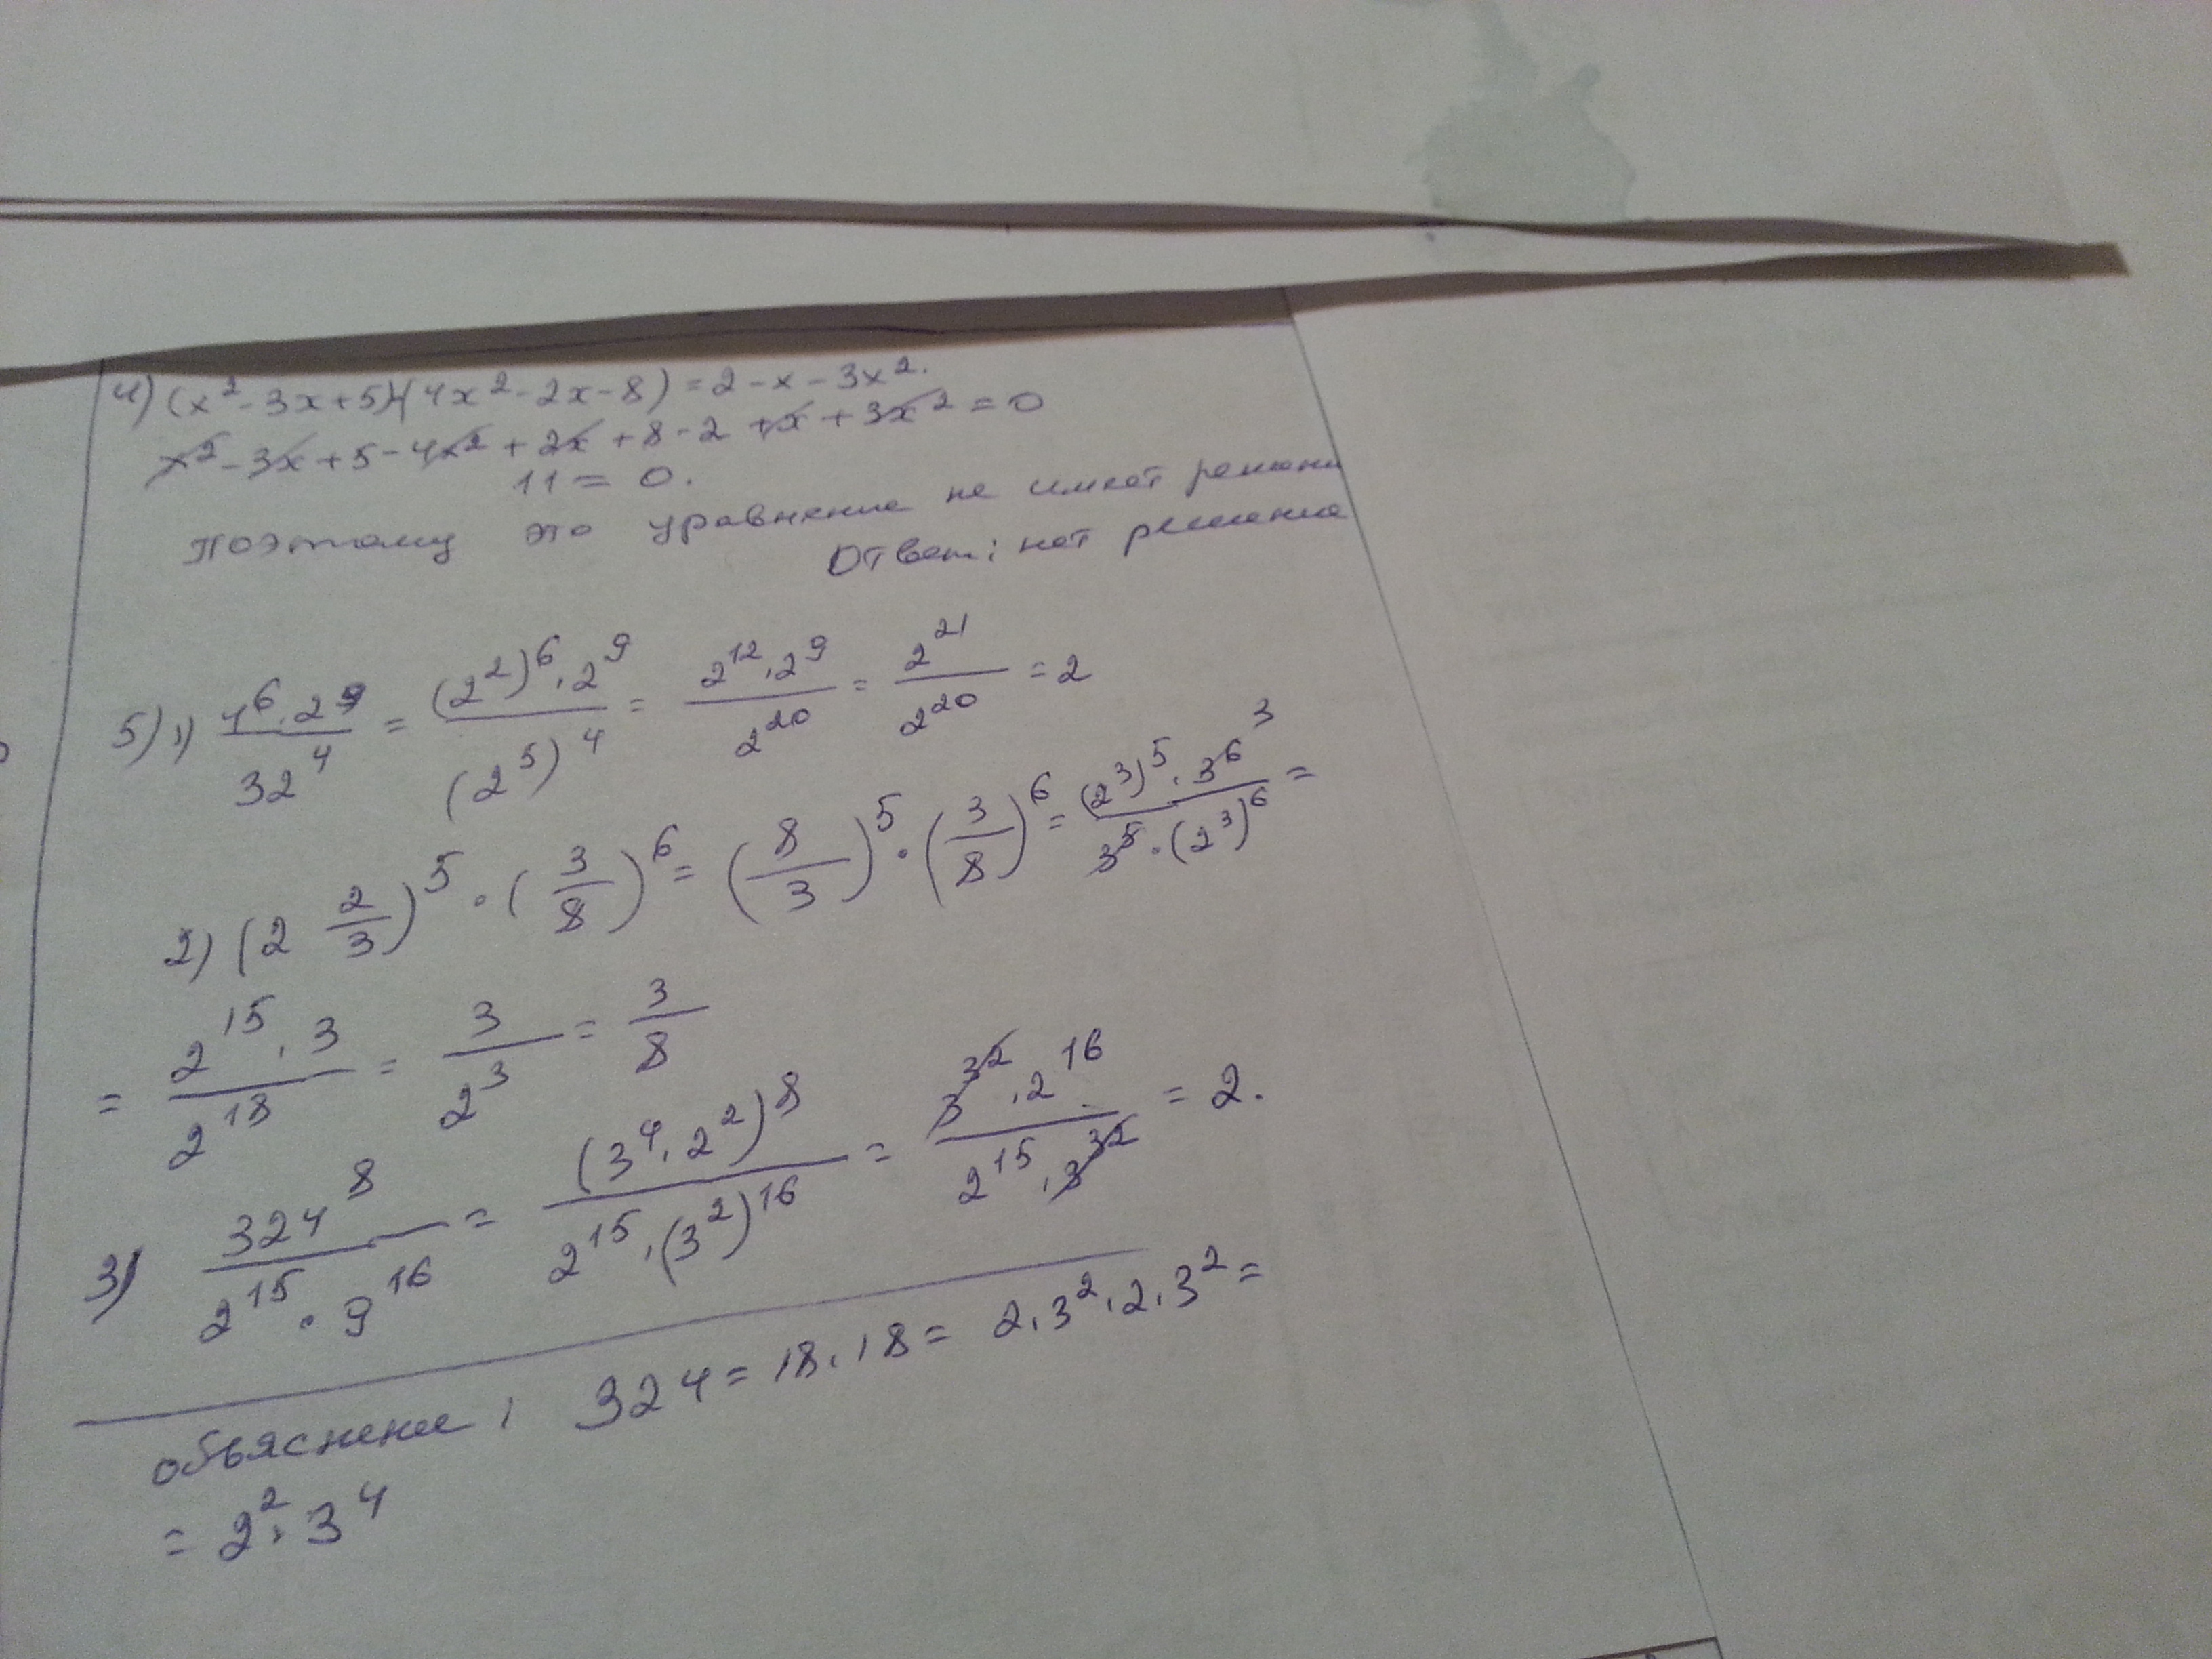 4) (x² - 3x + 5) - (4x² - 2x - 8) = 2 - x - 3x².
x² - 3x + 5 - 4x² + 2x + 8 - 2 + x + 3x² = 0
11 = 0.
Поэтому это уравнение не имеет решени
Ответ: нет решение
5) 1) (4⁶ · 2⁹)/32⁴ = ((2²)⁶ · 2⁹)/(2⁵)⁴ = (2¹² · 2⁹)/2²⁰ = 2²¹/2²⁰ = 2
2) (2 2/3)⁵ · (3/8)⁶ = (8/3)⁵ · (3/8)⁶ = ((2³)⁵ · 3⁶ 3)/(3⁵ · (2³)⁶) =
= (2¹⁵ · 3)/2¹⁸ = 3/2³ = 3/8
3) 324⁸/(2¹⁵ · 9¹⁶) = (3⁴ · 2²)⁸/(2¹⁵ · (3²)¹⁶) = (3³² · 2¹⁶)/(2¹⁵ · 3³²) = 2.
объяснение: 324 = 18 · 18 = 2 · 3² · 2 · 3² =
= 2² · 3⁴